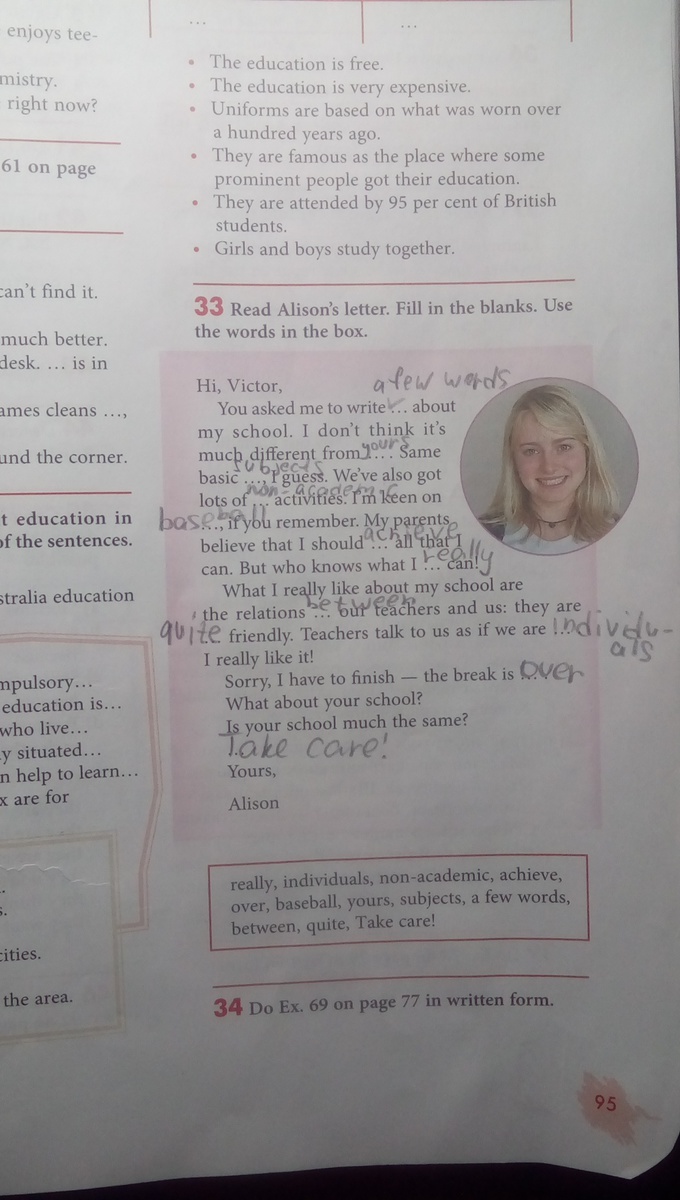 enjoys tee-
mistry.
right now?
61 on page
can't find it.
much better.
desk. ... is in
ames cleans ...,
und the corner.
t education in
of the sentences.
stralia education
mpulsory...
education is...
who live...
y situated...
n help to learn...
x are for
cities.
the area.
... ...
• The education is free.
• The education is very expensive.
• Uniforms are based on what was worn over
a hundred years ago.
• They are famous as the place where some
prominent people got their education.
• They are attended by 95 per cent of British
students.
• Girls and boys study together.
33 Read Alison's letter. Fill in the blanks. Use
the words in the box.
Hi, Victor,
a few words
You asked me to write ... about
my school. I don't think it's
yours
much different from ... . Same
subjects
basic ..., I guess. We've also got
non-academic
lots of ... activities. I'm keen on
baseball
..., if you remember. My parents
achieve
believe that I should ... all that I
really
can. But who knows what I ... can!
What I really like about my school are
between
the relations ... our teachers and us: they are
quite friendly. Teachers talk to us as if we are ... individu-
als
I really like it!
Sorry, I have to finish — the break is over
What about your school?
Is your school much the same?
Take care!
Yours,
Alison
really, individuals, non-academic, achieve,
over, baseball, yours, subjects, a few words,
between, quite, Take care!
34 Do Ex. 69 on page 77 in written form.
95